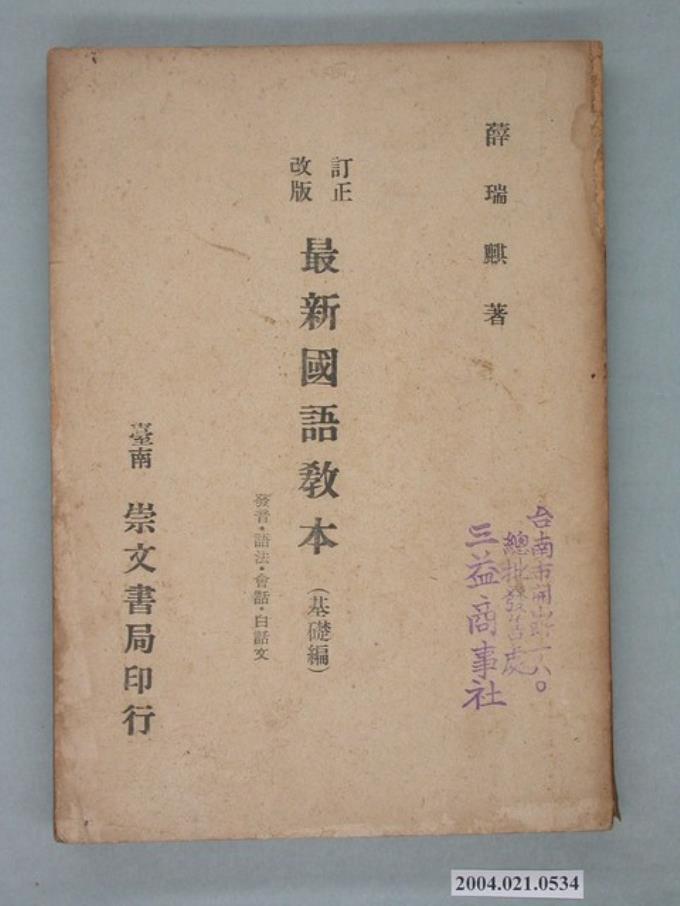 薛瑞麒著
訂正
改版
最新國語教本(基礎編)
發音・語法・會話・白話文
臺南 崇文書局印行
台南市開山町一八〇
總批發售處
三益商事社
2004.021.0534